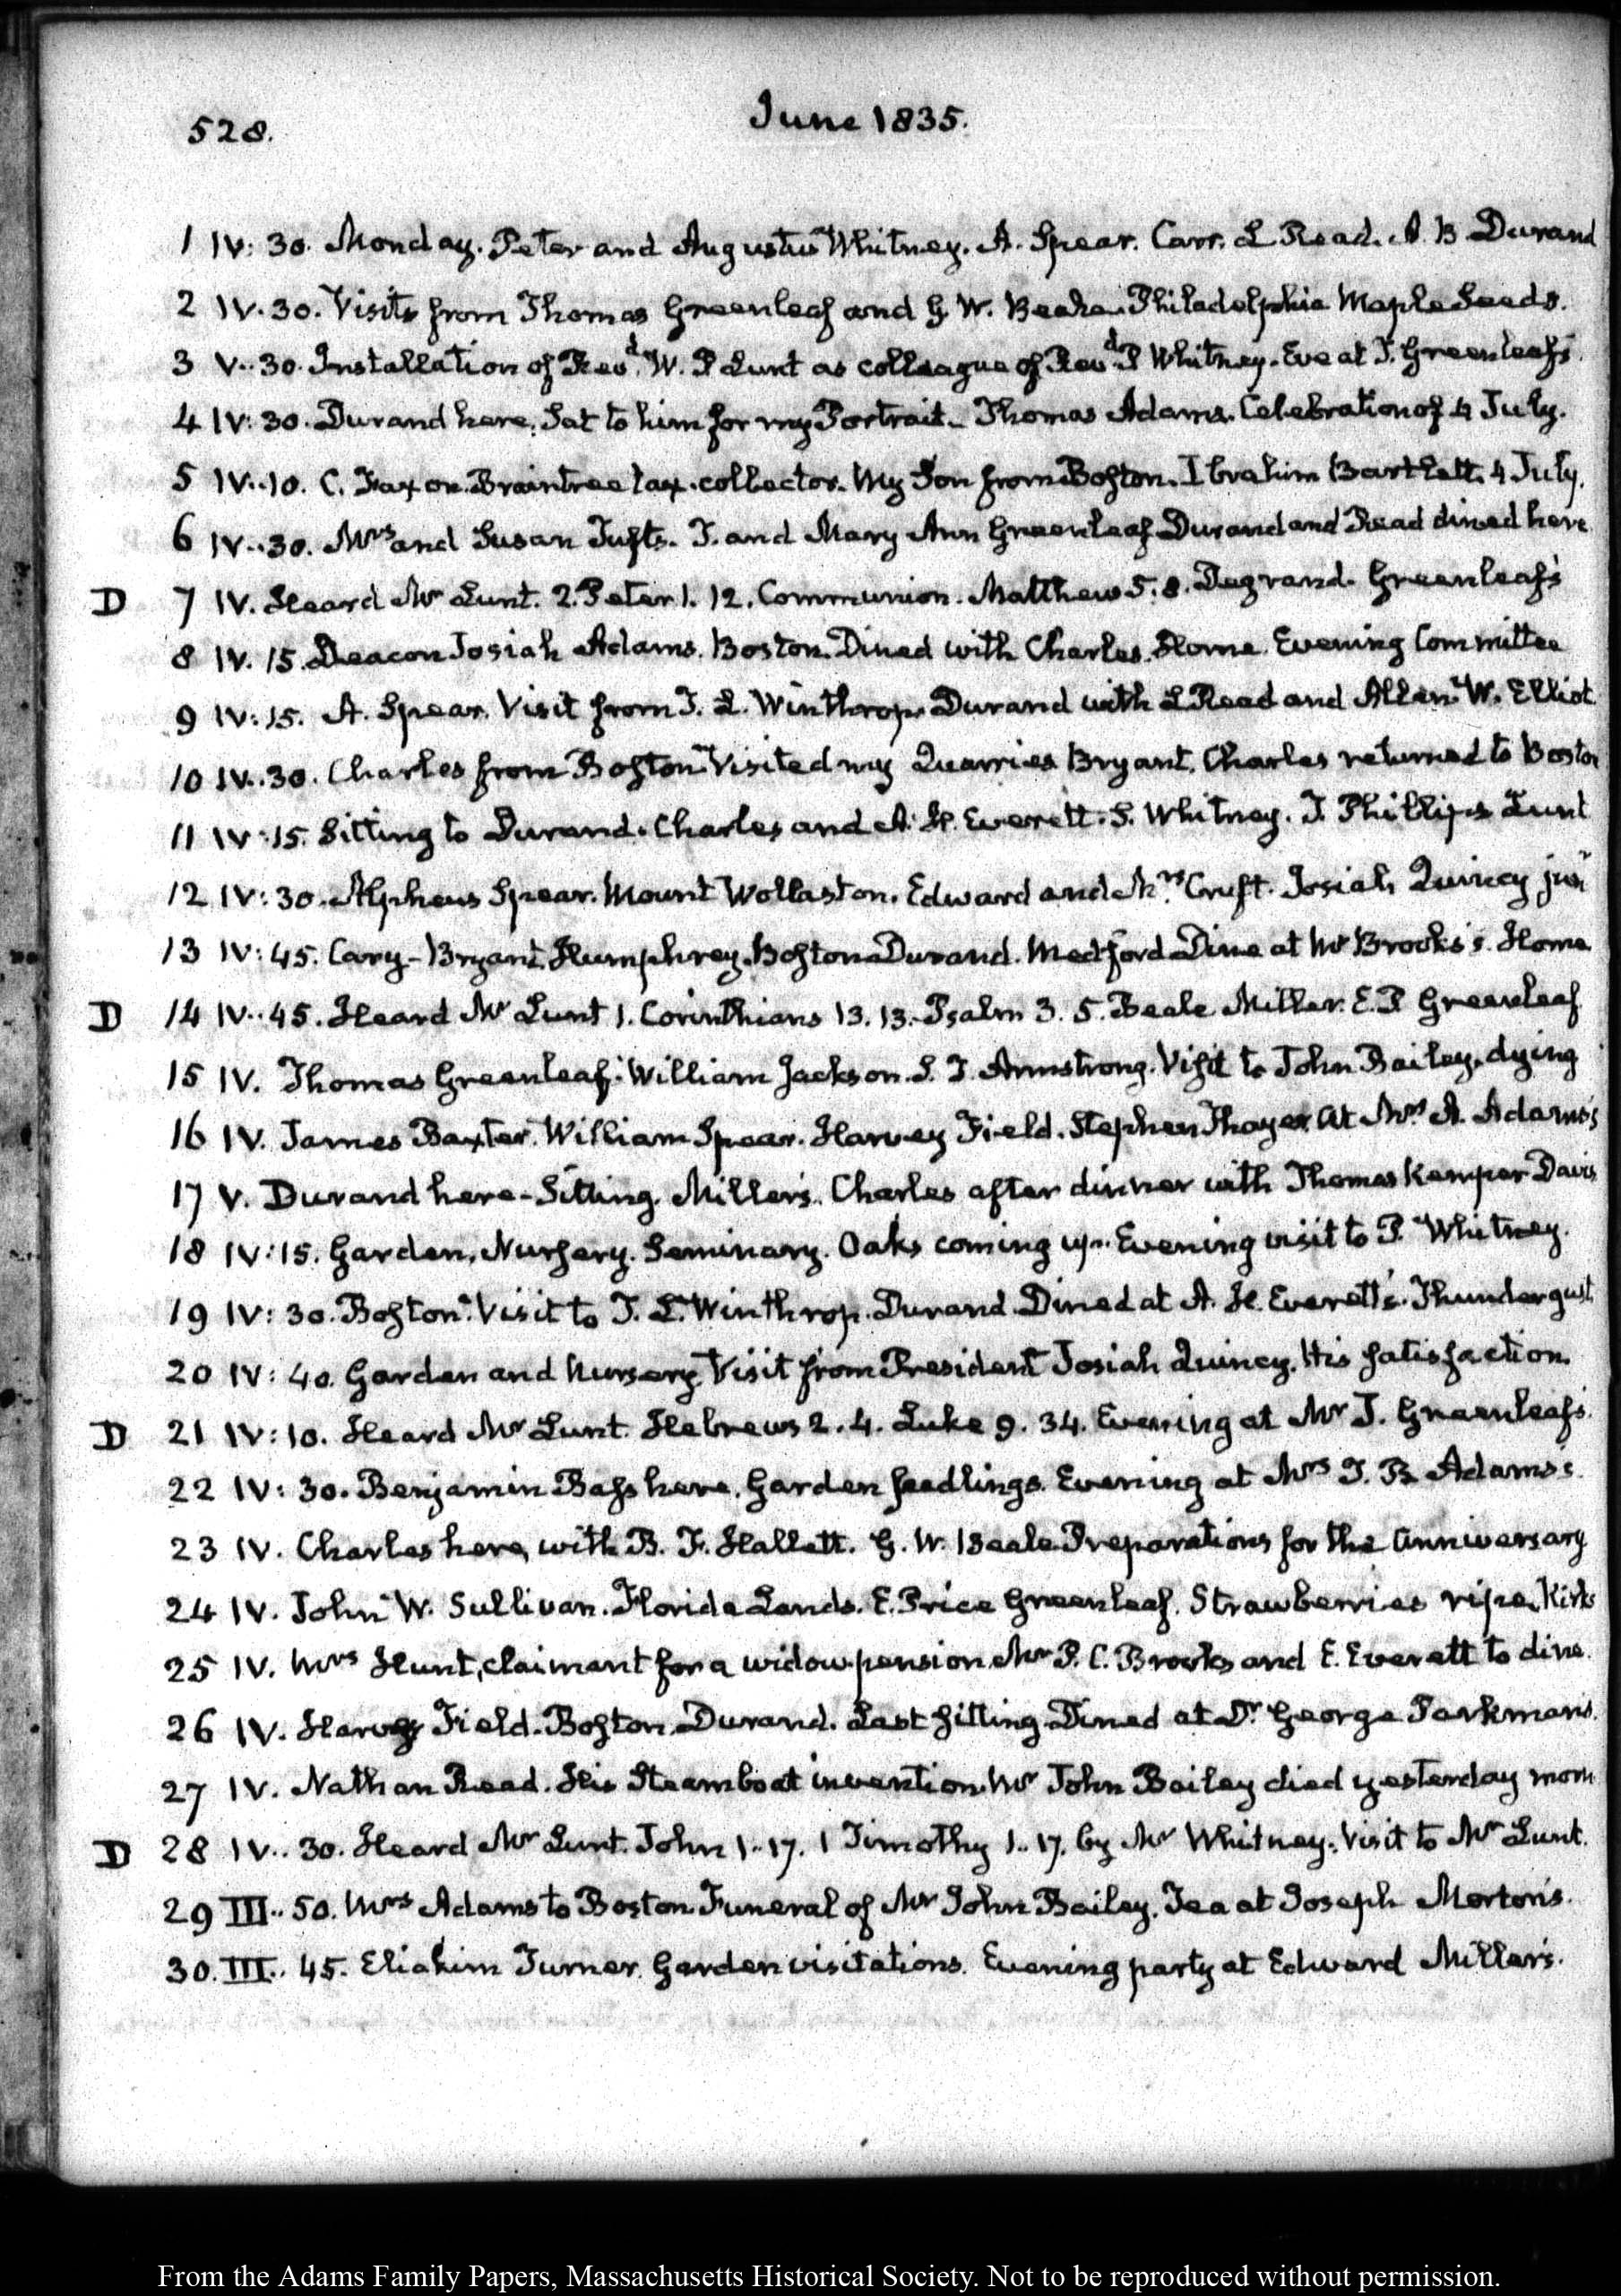 528.
June 1835.
1 IV: 30. Monday. Peter and Augustus Whitney. A. Spear. Carr. L Read. A. B Durand
2 IV. 30. Visits from Thomas Greenleaf and G. W. Beale. Philadelphia Maple Seeds.
3 V.. 30. Installation of Revd. W. P Lunt as colleague of Revd P Whitney. Eve at T. Greenleaf's.
4 IV: 30. Durand here. Sat to him for my Portrait. Thomas Adams. Celebration of 4 July.
5 IV..10. C. Faxon. Braintree tax. collector. My Son from Boston. Ibrahim Bartlett. 4 July.
6 IV..30. Mrs and Susan Tufts. T. and Mary Ann Greenleaf Durand and Read dined here
D 7 IV. Heard Mr Lunt. 2. Peter 1. 12. Communion. Matthew 5. 8. Degrand. Greenleaf's
8 IV. 15. Deacon Josiah Adams. Boston. Dined with Charles. Home. Evening Committee
9 IV: 15. A. Spear. Visit from T. L. Winthrop. Durand with L Read and Allan. W. Elliot
10 IV..30. Charles from Boston. Visited my Quarries Bryant. Charles returned to Boston
11 IV:15. Sitting to Durand. Charles and A. H. Everett. S. Whitney. T. Phillips Lunt
12 IV: 30. Alpheus Spear. Mount Wollaston. Edward and Mrs. Cruft. Josiah Quincy junr
13 IV: 45. Cary. Bryant. Humphrey. Boston Durand. Medford Dine at Mr Brooks's. Home.
D 14 IV.. 45. Heard Mr Lunt 1. Corinthians 13. 13. Psalm 3. 5. Beale Miller. E. P Greenleaf
15 IV. Thomas Greenleaf. William Jackson. S. T. Armstrong. Visit to John Bailey, dying
16 IV. James Baxter. William Spear. Harvey Field. Stephen Thayer. At Mrs. A. Adams's
17 V. Durand here - Sitting. Miller's. Charles after dinner with Thomas Kemper Davis
18 IV:15. Garden, Nursery. Seminary. Oaks coming up. Evening visit to P. Whitney.
19 IV: 30. Boston. Visit to T. L. Winthrop. Durand Dined at A. H. Everett's. Thundergust
20 IV: 40. Garden and Nursery. Visit from President Josiah Quincy. His satisfaction.
D 21 IV: 10. Heard Mr Lunt. Hebrews 2. 4. Luke 9. 34. Evening at Mr T. Greenleaf's.
22 IV: 30. Benjamin Bass here. Garden seedlings. Evening at Mrs T. B. Adams's.
23 IV. Charles here, with B. F. Hallett. G. W. Beale Preparations for the Anniversary
24 IV. John W. Sullivan. Florida Lands. E. Price Greenleaf. Strawberries ripe. Kirks
25 IV. Mrs Hunt, claimant for a widow pension Mr P. C. Brooks and E. Everett to dine.
26 IV. Harvey Field. Boston. Durand. Last sitting. Dined at Dr George Parkman's.
27 IV. Nathan Read. His Steamboat invention. Mr John Bailey died yesterday morn
D 28 IV.. 30. Heard Mr Lunt. John 1..17. 1 Timothy 1..17. by Mr Whitney. Visit to Mr Lunt.
29 III.. 50. Mrs Adams to Boston Funeral of Mr John Bailey. Tea at Joseph Morton's.
30. III.. 45. Eliakim Turner. Garden visitations. Evening party at Edward Miller's.
From the Adams Family Papers, Massachusetts Historical Society. Not to be reproduced without permission.